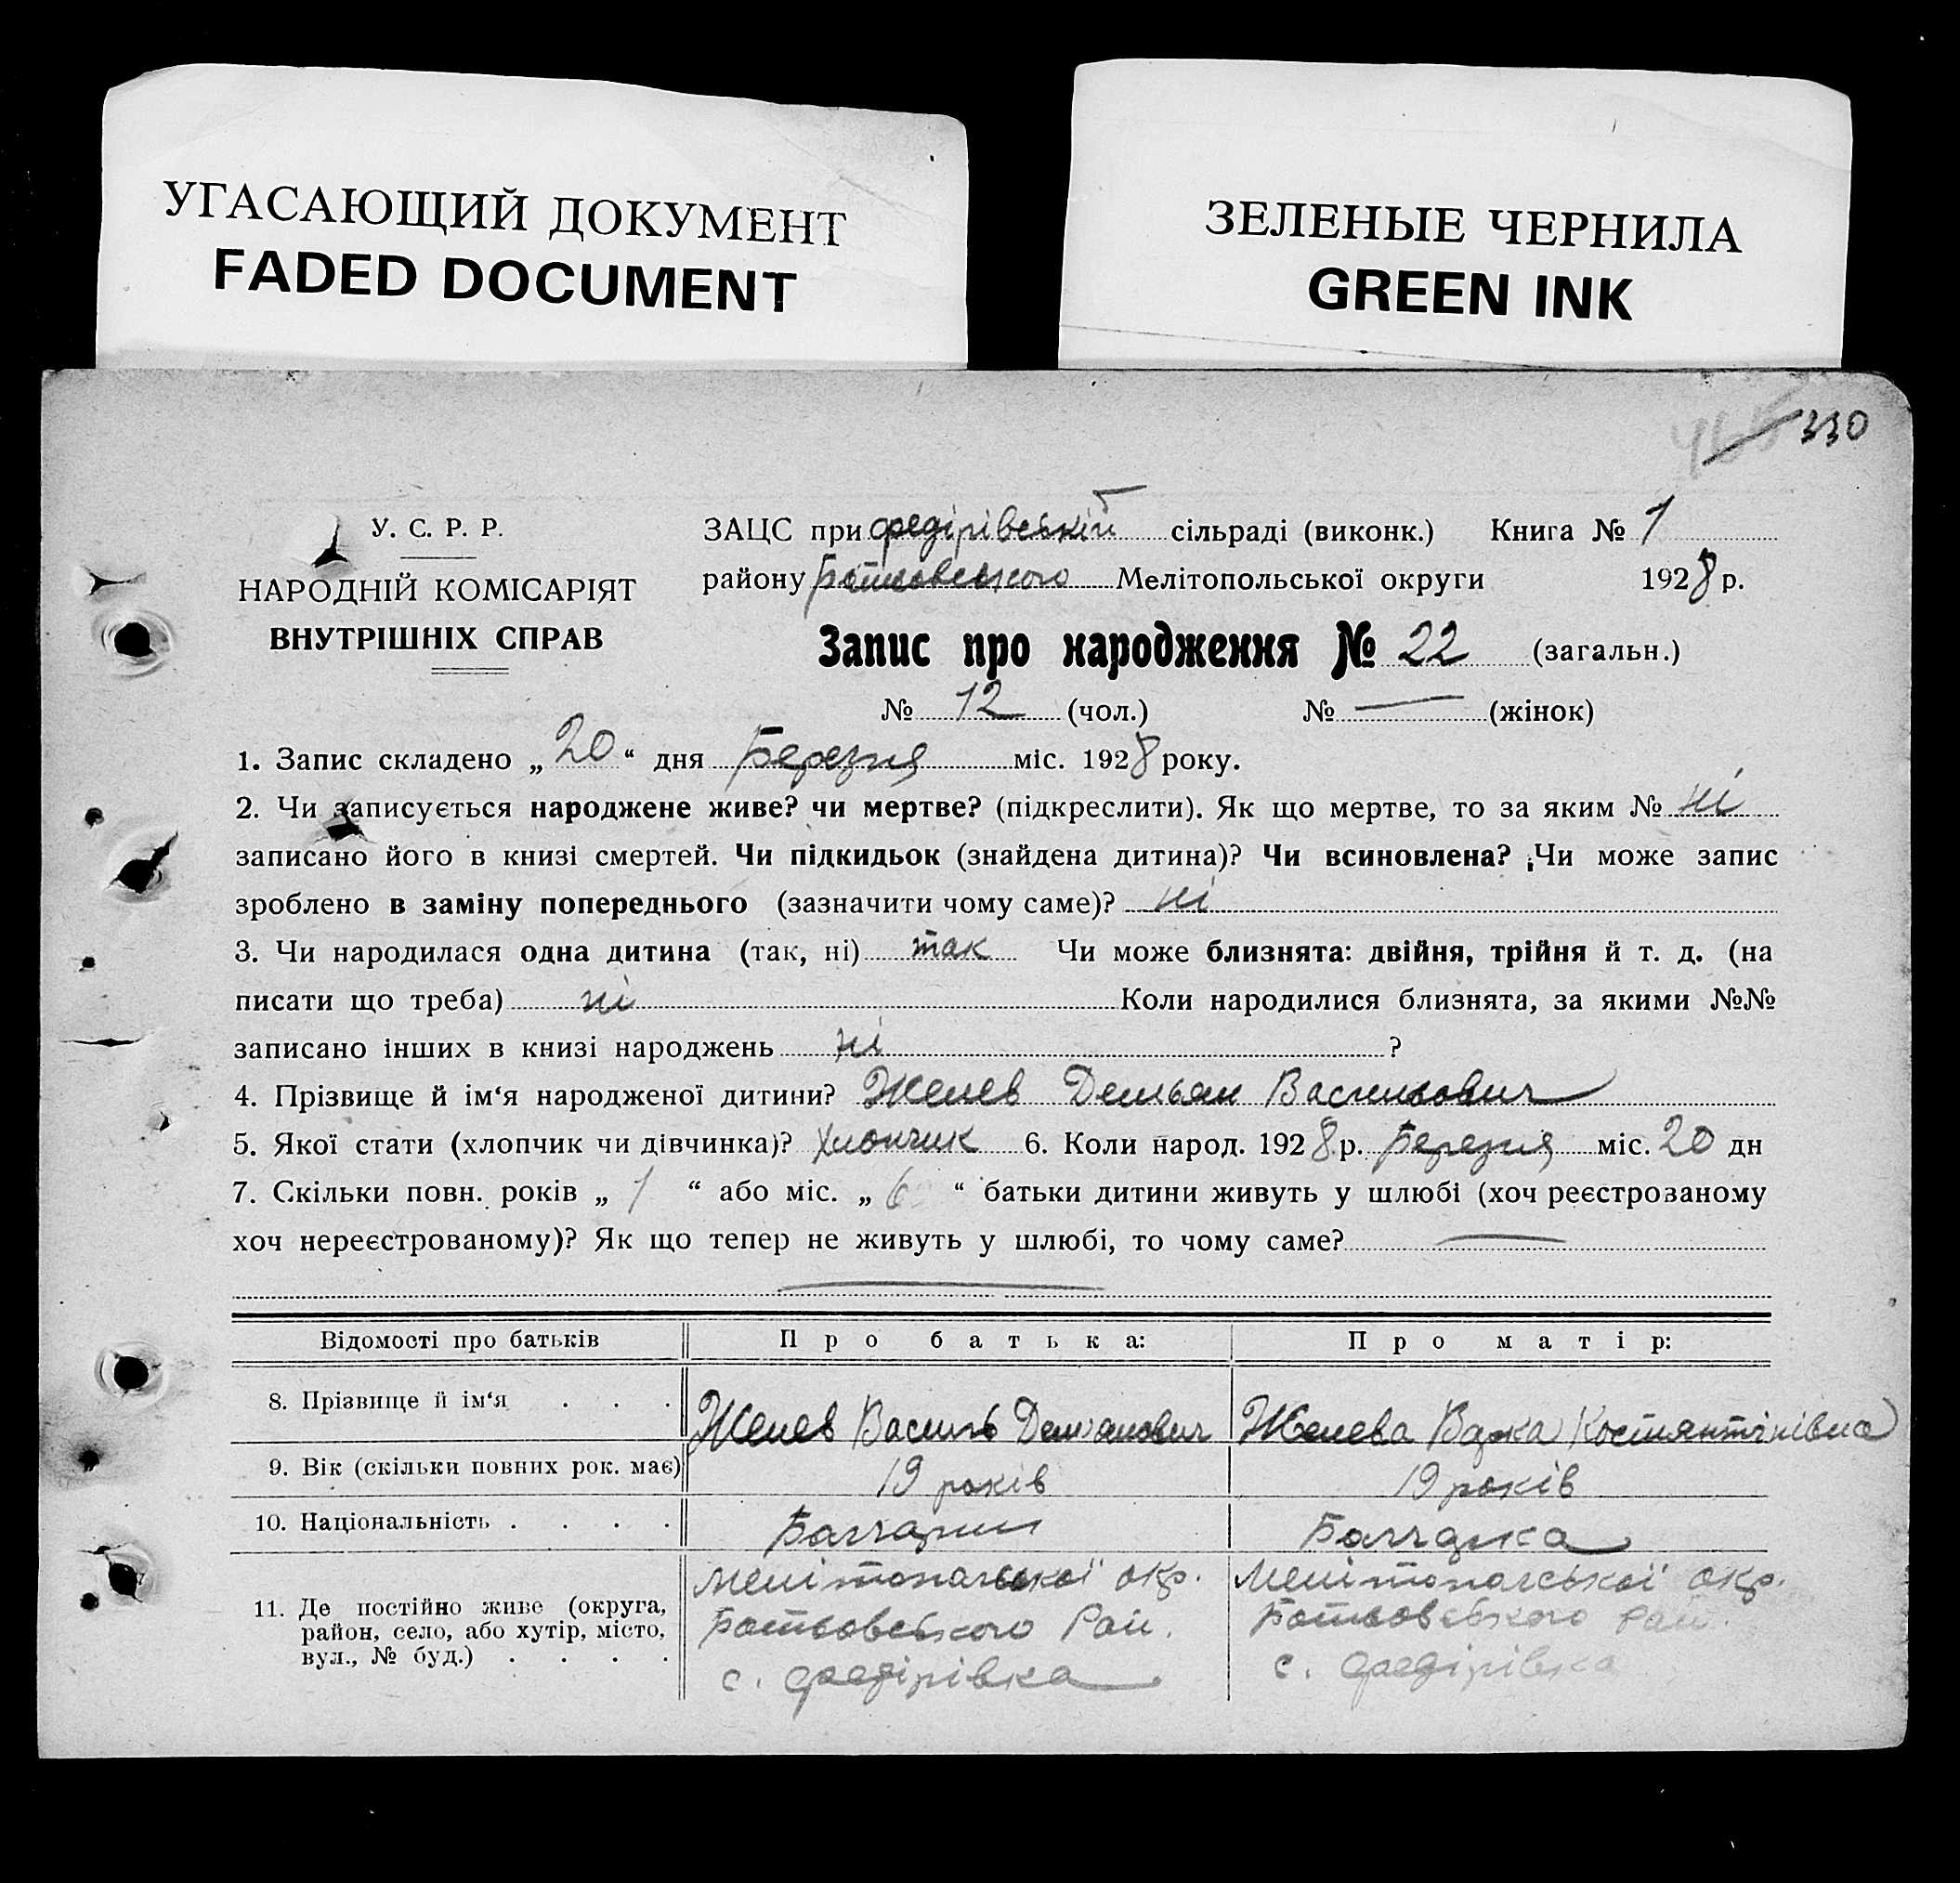 УГАСАЮЩИЙ ДОКУМЕНТ
FADED DOCUMENT
ЗЕЛЕНЫЕ ЧЕРНИЛА
GREEN INK
330
У. С. Р. Р.
НАРОДНІЙ КОМІСАРІЯТ
ВНУТРІШНІХ СПРАВ
ЗАЦС при федірівській сільраді (виконк.) Книга № 1
району Ботьовського Мелітопольської округи 1928 р.
Запис про народження № 22 (загальн.)
№ 12 (чол.) № — (жінок)
1. Запис складено „20“ дня Березня міс. 1928 року.
2. Чи записується народжене живе? чи мертве? (підкреслити). Як що мертве, то за яким № ні
записано його в книзі смертей. Чи підкидьок (знайдена дитина)? Чи всиновлена? Чи може запис
зроблено в заміну попереднього (зазначити чому саме)? ні
3. Чи народилася одна дитина (так, ні) так Чи може близнята: двійня, трійня й т. д. (на
писати що треба) ні Коли народилися близнята, за якими №№
записано інших в книзі народжень ні ?
4. Прізвище й ім‘я народженої дитини? Желев Демьян Васильович
5. Якої стати (хлопчик чи дівчинка)? Хлопчик 6. Коли народ. 1928 р. Березня міс. 20 дн
7. Скільки повн. років „ 1 “ або міс. „ 6 “ батьки дитини живуть у шлюбі (хоч реєстрованому
хоч нереєстрованому)? Як що тепер не живуть у шлюбі, то чому саме? —
Відомості про батьків Про батька: Про матір:
8. Прізвище й ім‘я . . . Желев Василь Демянович Желева Варка Костянтінівна
9. Вік (скільки повних рок. має) 19 років 19 років
10. Національність . . . . Болгарин Болгарка
11. Де постійно живе (округа, район, село, або хутір, місто, вул., № буд.) . . . .
Мелітопольської окр.
Ботьовського Рай.
с. федірівка
Мелітопольської окр.
Ботьовського Рай.
с. федірівка